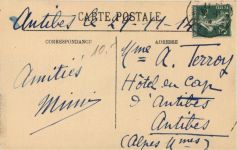 CARTE POSTALE
Antibes le 27-11-14
CORRESPONDANCE
ADRESSE
Amitiés
Mimi
Mme A. Terroy
Hôtel du Cap
d'Antibes
Antibes
(Alpes Mmes)